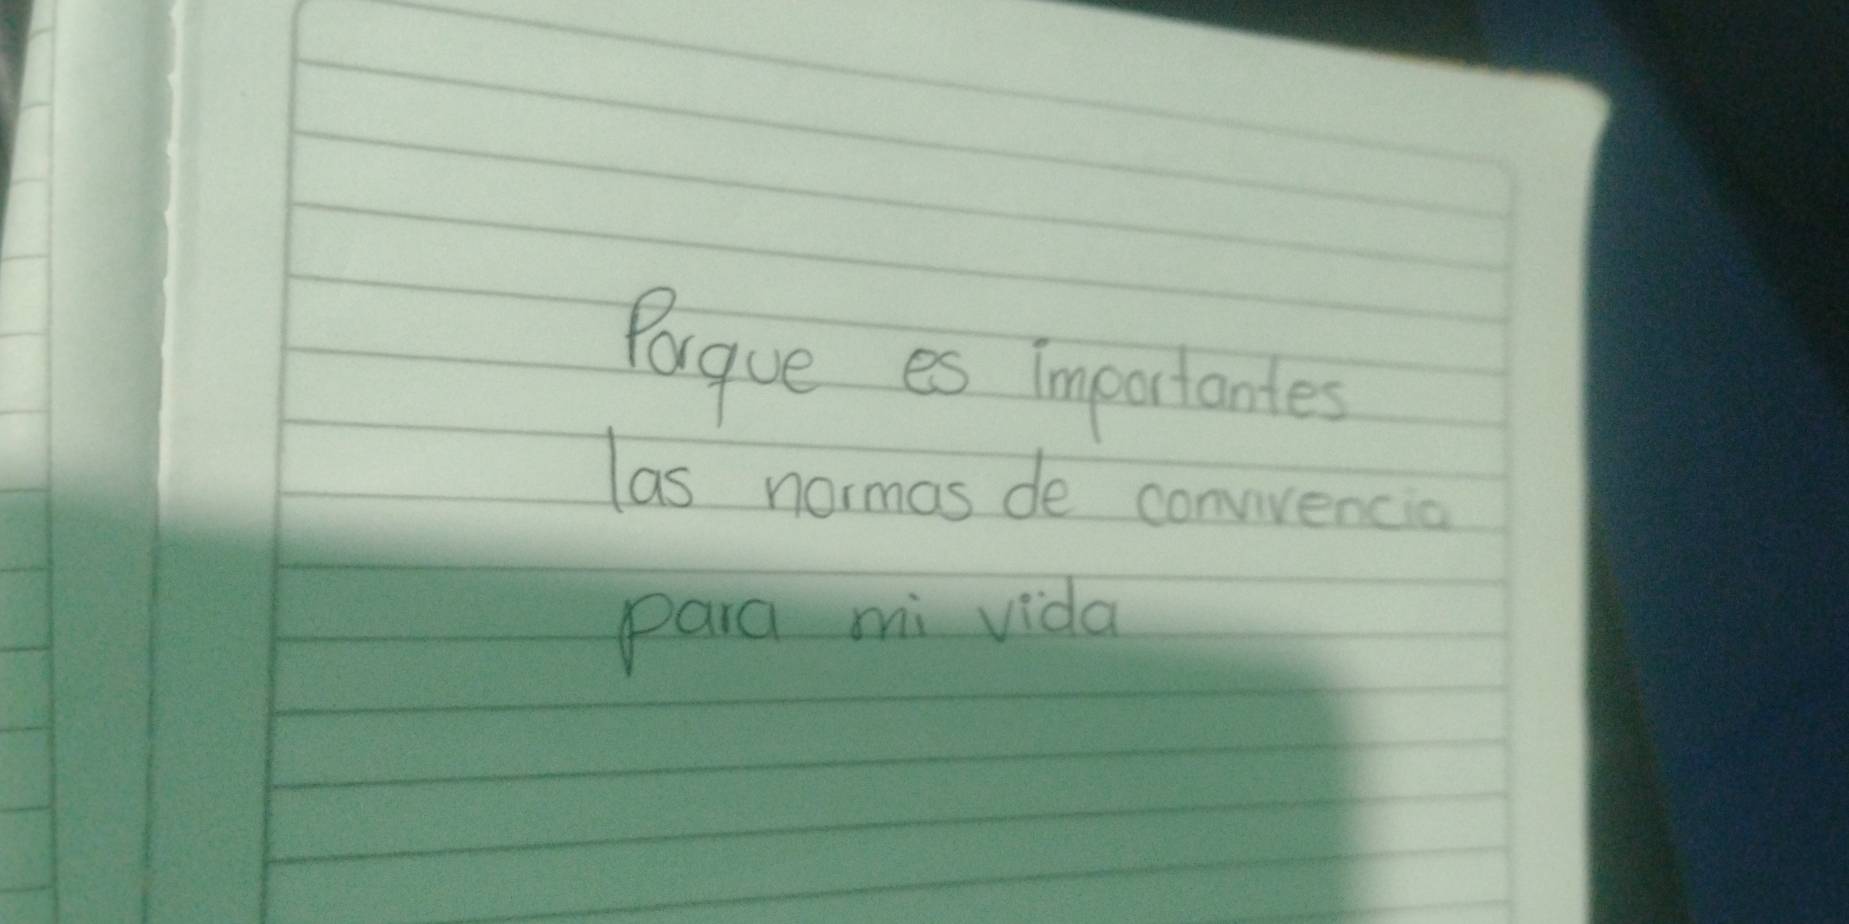 Porque es importantes
las normas de convivencia
para mi vida